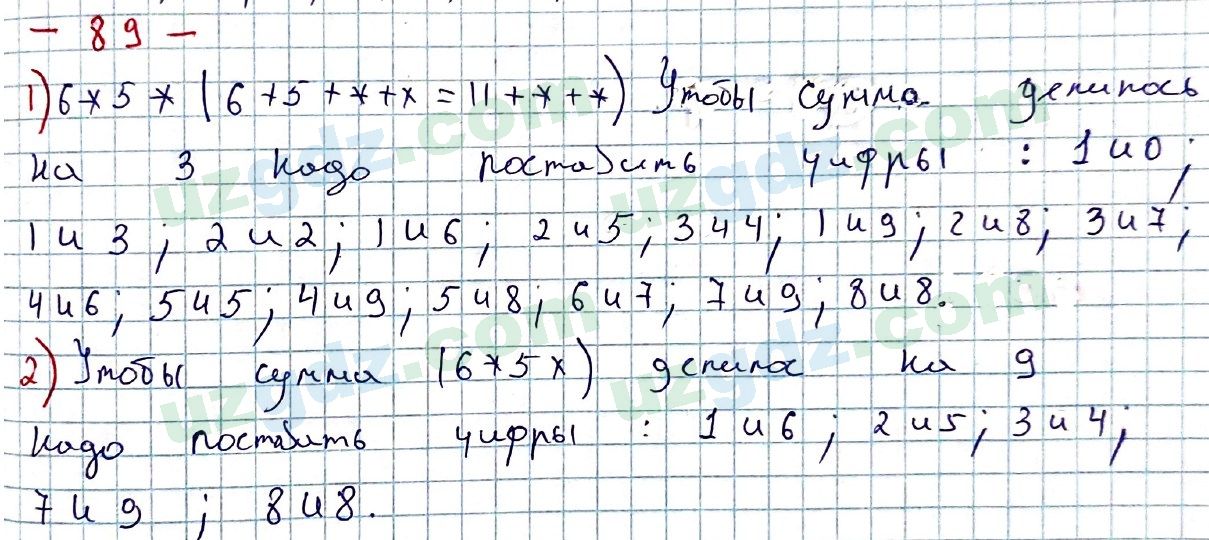 - 89 -
1) 6*5* (6+5+*+* = 11+*+*) Чтобы сумма делилось
на 3 надо поставить цифры : 1 и 0;
1 и 3; 2 и 2; 1 и 6; 2 и 5; 3 и 4; 1 и 9; 2 и 8; 3 и 7;
4 и 6; 5 и 5; 4 и 9; 5 и 8; 6 и 7; 7 и 9; 8 и 8.
2) Чтобы сумма (6*5*) делилос на 9
надо поставить цифры : 1 и 6; 2 и 5; 3 и 4;
7 и 9; 8 и 8.
uzgdz.com
uzgdz.com
uzgdz.com
uzgdz.com